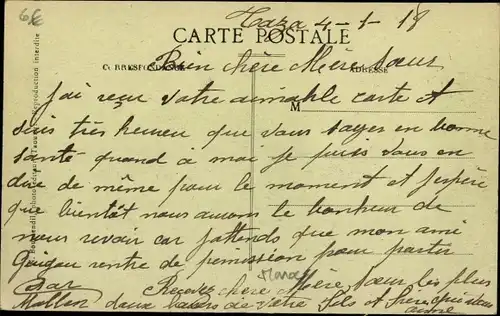 6€
Taza 4-1-18
CARTE POSTALE
CORRESPONDANCE
ADRESSE
Bien chère Mère Sœur
J'ai reçu votre aimable carte et
M
suis très heureu que vous soyer en bonne
santé quand à moi je puis vous en
dire de même pour le moment et j'espère
que bientôt nous aurons le bonheur de
nous revoir car j'attends que mon ami
Guigou rentre de permission pour partir
Recevez chère Mère Sœur les plus
doux baisers de votre fils et frère qui vous
aime
Reproduction interdite